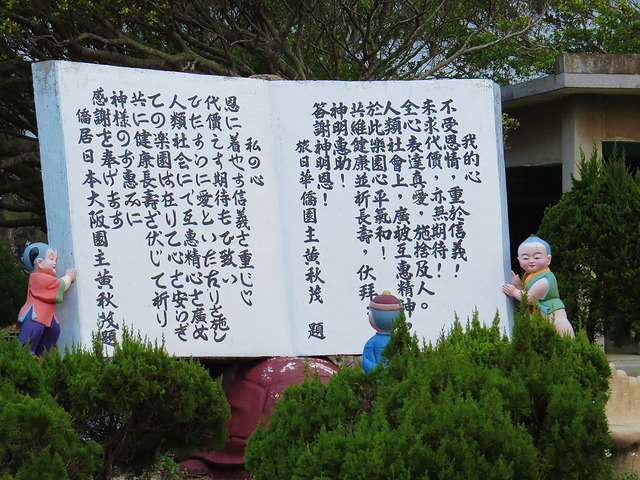 我的心
不受恩情，重於信義！
未求代價，亦無期待！
全心表達真愛，施捨及人。
人類社會上，廣被互惠精神，
於此樂園心平氣和！
共維健康並祈長壽，伏拜
神明惠助！
答謝神明恩！
旅日華僑園主黃秋茂 題
私の心
恩に着せず信義を重じ
代償を求期待もせず致い
ひたすらに愛といたわりを施し
人類社会にて互惠精心を広め
この楽園は在りて心を安らぎ
共に健康長寿を伏して祈り
神様のお惠みに
感謝を奉げます
僑居日本大阪園主黃秋茂題